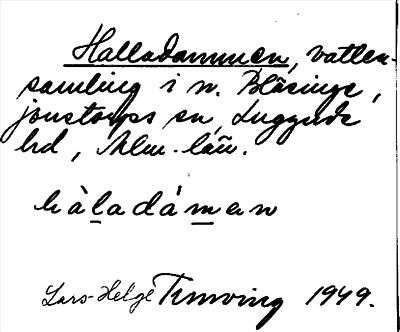 Halladammen, vatten-
samling i n. Bläsinge,
Jonstorps sn, Luggude
hd, Mlm. län.
hàladámen
Lars-Helge Tunving 1949.